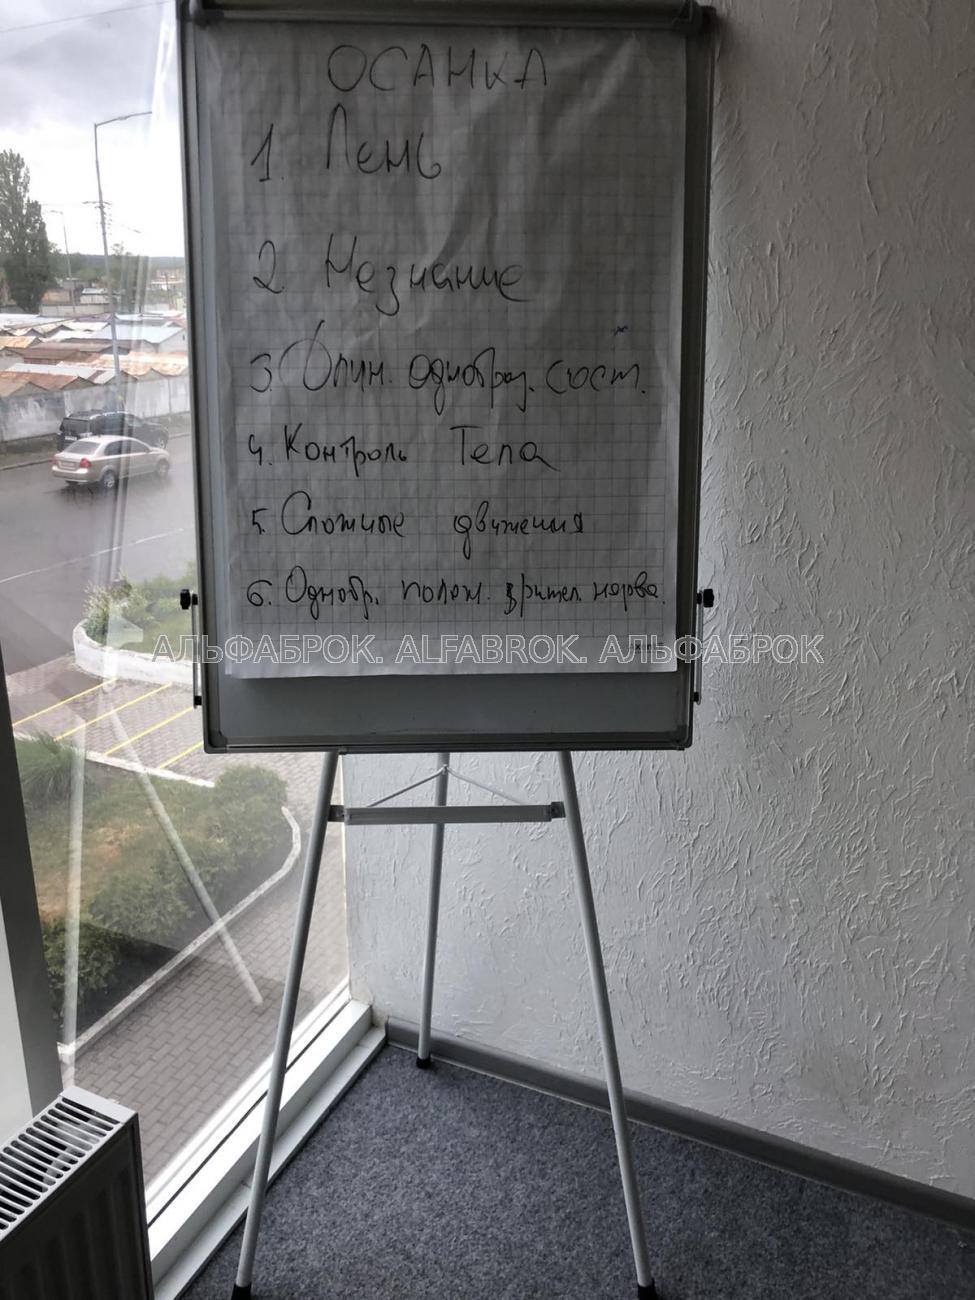 ОСАНКА
1. Лень
2 Незнание
3. Длин. однобраз. сост.
4. Контроль Тела
5. Сложные движения
6. Однобр. полож. зрител. нерва.
АЛЬФАБРОК. ALFABROK. АЛЬФАБРОК